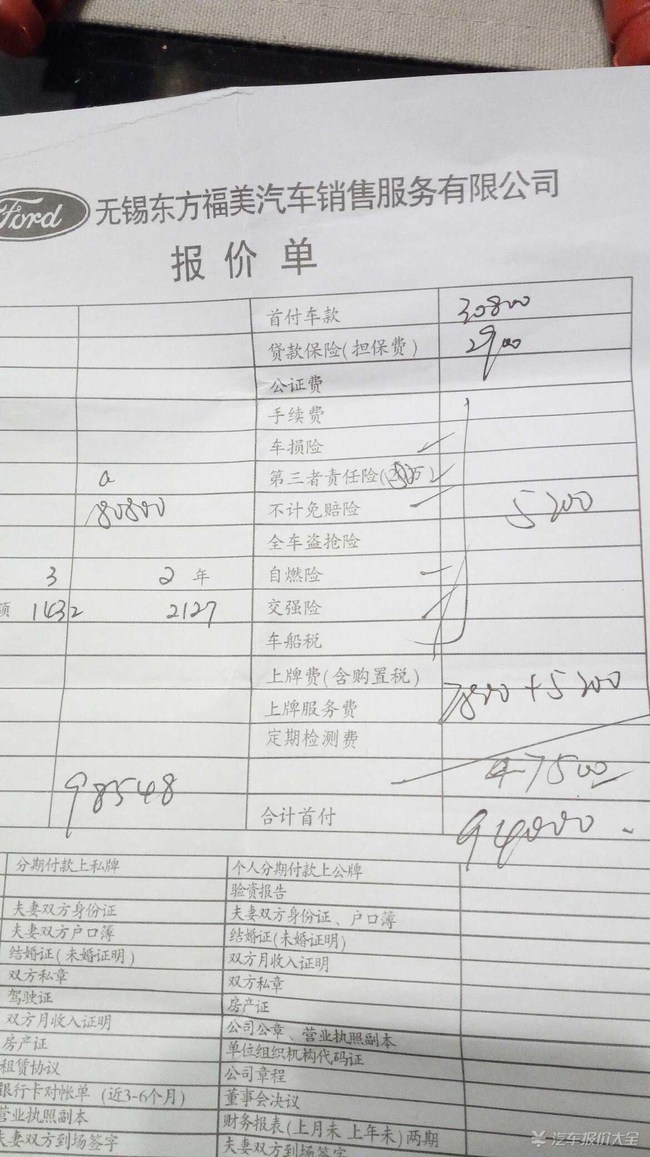 Ford 无锡东方福美汽车销售服务有限公司
报价单
首付车款 30800
贷款保险(担保费) 2900
公证费
手续费
车损险
a 第三者责任险(
80800 不计免赔险 5200
全车盗抢险
3 2年 自燃险
额 1432 2127 交强险
车船税
上牌费(含购置税)
上牌服务费 7800+5200
定期检测费
98548 47500
合计首付 94000
分期付款上私牌 个人分期付款上公牌
验资报告
夫妻双方身份证 夫妻双方身份证、户口簿
夫妻双方户口簿 结婚证(未婚证明)
结婚证(未婚证明) 双方月收入证明
双方私章 双方私章
驾驶证 房产证
双方月收入证明 公司公章、营业执照副本
房产证 单位组织机构代码证
租赁协议 公司章程
银行卡对帐单(近3-6个月) 董事会决议
营业执照副本 财务报表(上月末 上年末)两期
夫妻双方到场签字 夫妻双方到场签字
汽车报价大全